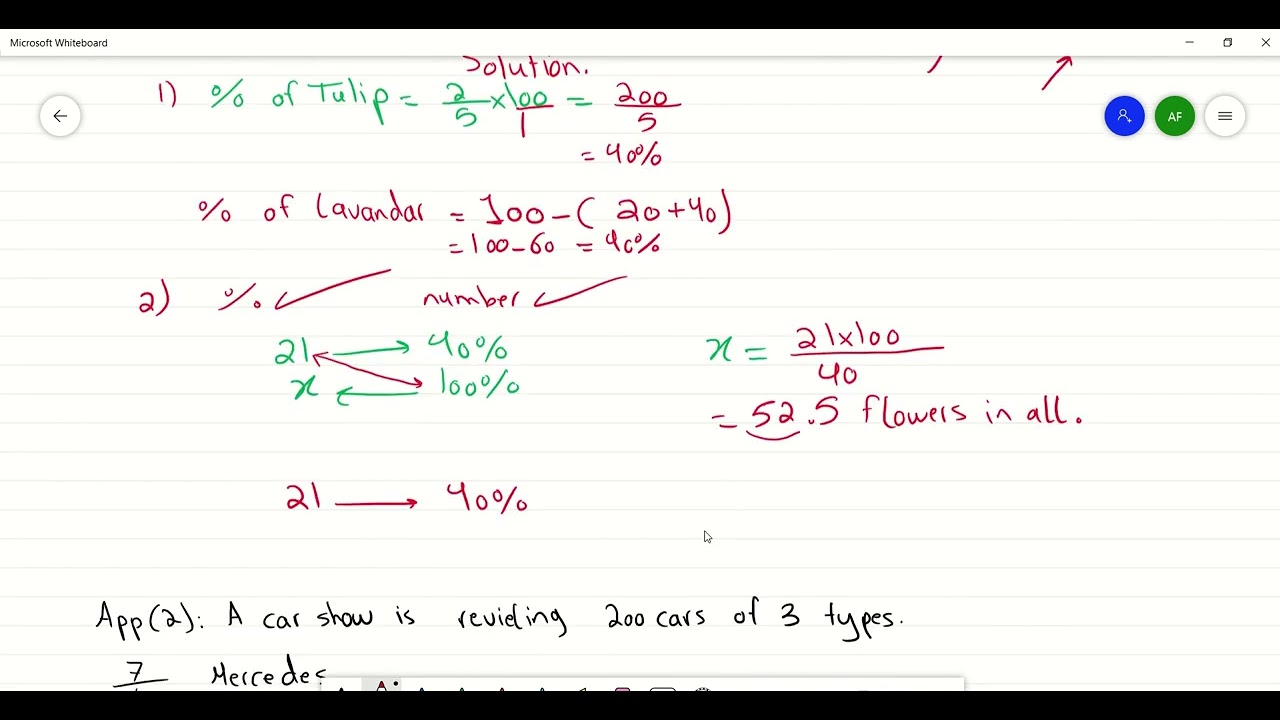 Microsoft Whiteboard
Solution.
1) % of Tulip = 2/5 x 100/1 = 200/5
= 40%
% of Lavandar = 100 - ( 20 + 40 )
= 100 - 60 = 40%
2) % number
21 → 40%
x ← 100%
x = 21x100/40
= 52.5 flowers in all.
21 → 40%
App(2): A car show is reviding 200 cars of 3 types.
7 Mercedes
AF